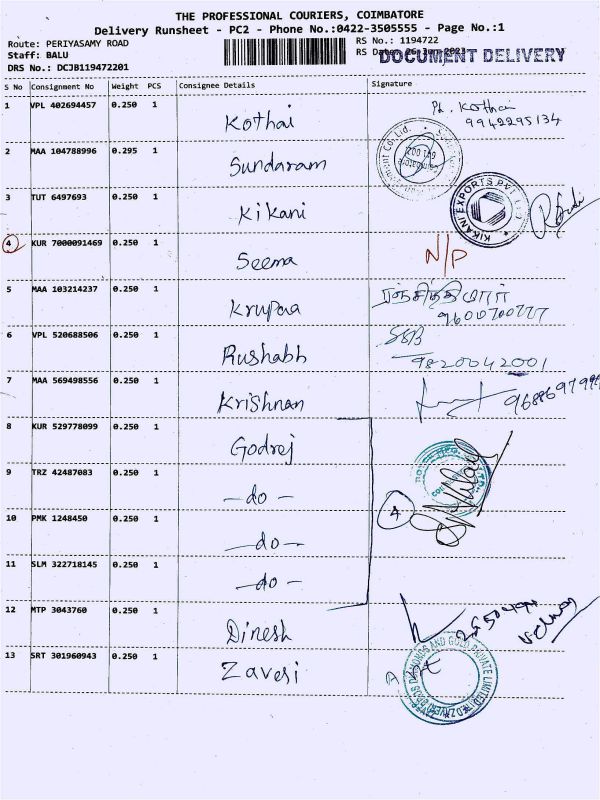 THE PROFESSIONAL COURIERS, COIMBATORE
Delivery Runsheet - PC2 - Phone No.:0422-3505555 - Page No.:1
Route: PERIYASAMY ROAD
Staff: BALU
DRS No.: DCJB119472201
RS No.: 1194722
RS Date:
DOCUMENT DELIVERY
S No Consignment No Weight PCS Consignee Details Signature
1 VPL 402694457 0.250 1 Kothai Ph. Kothai
9942295134
2 MAA 104788996 0.295 1 Sundaram
3 TUT 6497693 0.250 1 Kikani
KIKANI EXPORTS PVT LTD
4 KUR 7000091469 0.250 1 Seema N/P
5 MAA 103214237 0.250 1 Krupaa
9600700777
6 VPL 520688506 0.250 1 Rushabh
9820042001
7 MAA 569498556 0.250 1 Krishnan
8 KUR 529778099 0.250 1 Godrej
9 TRZ 42487083 0.250 1 -do-
4
10 PMK 1248450 0.250 1 -do-
11 SLM 322718145 0.250 1 -do-
12 MTP 3043760 0.250 1 Dinesh
13 SRT 301960943 0.250 1 Zaveri
DIAMONDS AND GOLD PRIVATE LIMITED